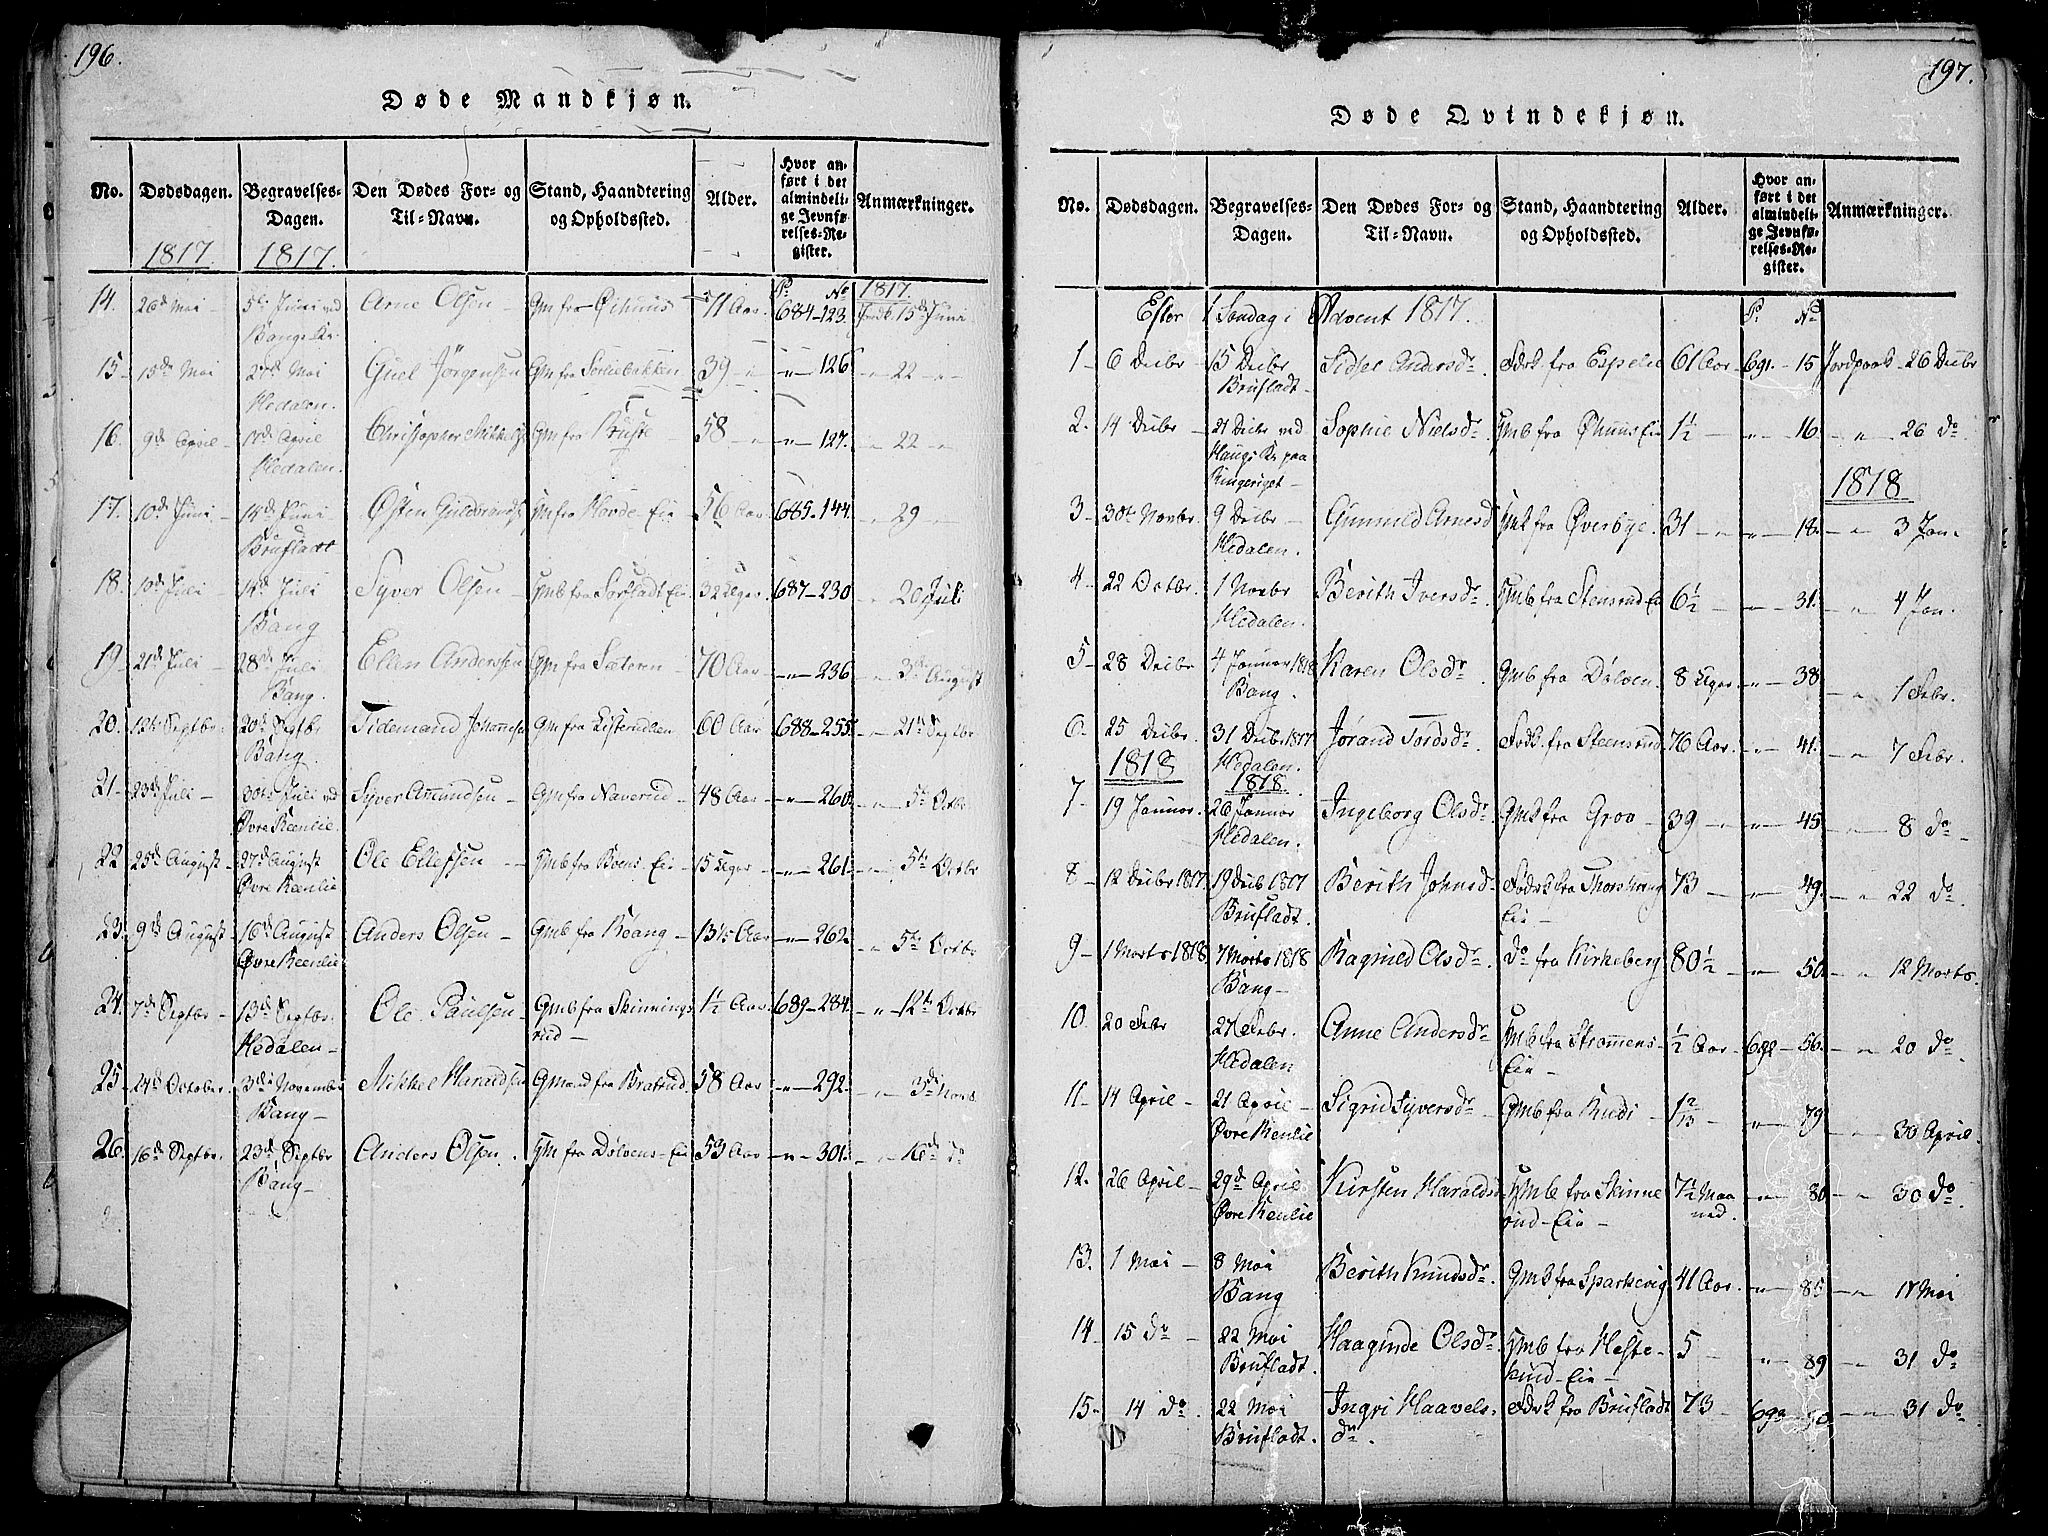 196.
Døde Mandkjøn.
No. Dødsdagen. Begravelses-Dagen. Den Dødes For- og Til-Navn. Stand, Haandtering og Opholdssted. Alder. Hvor anført i det almindelige Jevnførelses-Register. Anmærkninger.
1817. 1817. P. No 1817.
14. 26d Mai 5te Juni ved Arne Olsen Gm fra 71 Aar 684-123. 15de Juni
Bangs Kr.
15 15de Mai 27de Mai Jörgensen Gm fra Sørliebakken 39 " " 126 " 22 "
Hedalen.
16. 9de April 17de April Christopher Gm fra 58 " " 127. " 22 "
Hedalen.
17. 10de Juni 14de Juni Østen Guldbrands Gm fra Hovde Eie 56 Aar 685.144. " 29
Brufladt
18. 10de Juli 14d Juli Syver Olsen Gmb fra Eie 32 Uger. 687-230 " 20 Juli
Bang
19 21de Juli 28de Juli Ellen Anderssen Gm fra Sætern 70 Aar " 236 " 3de August
Bang.
20. 12te Septbr. 20de Septbr Tidemand Johannes Gm fra 60 Aar 688-255. " 21te Septbr
Bang.
21 23de Juli 30te Juli ved Syver Amundsen Gm fra Naverud 48 Aar " 260. " 5te Octbr
Øvre Reenlie.
22 25de August 27d August Ole Ellefsen Gmb fra Eie 15 Uger " 261. " 5te Octbr
Øvre Reenlie
23. 9de August 16de August Anders Olsen Gmb fra Reang 13½ Aar " 262. " 5te Octbr
Øvre Reenlie
24. 7de Septbr 13de Septbr. Ole Paulsen Gmb fra Skinnings 1½ Aar. 689-284. " 12te Octbr
Hedalen rud
25 24de October 3de November Mikkel Haraldsen Gmand fra Bratrud 58 Aar " 292. " 3de
Bang
26. 16de Septbr. 23d Septbr Anders Olsen. Gm fra Dølvens-Eie 53 Aar " 301. " 16de do
Bang
197.
Døde Qvindekjøn.
No. Dødsdagen. Begravelses-Dagen. Den Dødes For- og Til-Navn. Stand, Haandtering og Opholdssted. Alder. Hvor anført i det almindelige Jevnførelses-Register. Anmærkninger.
Efter 1 Søndag i Advent 1817. P. No
1 6 Decbr 15 Decbr Sidsel Andersdr. fra Espelie 61 Aar 691. 15 Jordpaak. 26 Decbr
Brufladt
2. 14 Decbr 21 Decbr ved Sophie Nielsdr Gmb fra Eie 1½ " 16. " 26 do
Kr. paa
Ringeriget 1818
3 30te Novbr. 9 Decbr Gunnild Arnesd Gmk fra Øverbye. 31 " 18. " 3 Jan.
Hedalen.
4 22 Octbr. 1 Novbr Berith Iversdr Gmb fra Stensrud Eie 6½ " 31. " 4 Jan.
Hedalen.
5 28 Decbr 4 Januar 1818 Karen Olsdr. Gmb fra Dølven. 8 Uger. " 38 " 1 Febr.
Bang.
6. 25 Decbr. 31 Decbr 1817 Jørand Tordsdr. fra Steensrud 76 Aar. " 41. " 7 Febr.
1818 Hedalen.
1818.
7 19 Januar. 26 Januar Ingeborg Olsdr. Gmk fra Grov 39 " 45. " 8 do
Hedalen.
8 12 Decbr 1817. 19 Decb 1817 Berith Johnsd fra 73 " 49. " 22 do.
Brufladt. Eie
9 1 Marts 1818. 7 Marts 1818 Ragnild Olsdr. do fra Kirkeberg 80½ " 50. " 12 Marts.
Bang
10. 20 Febr 27 Febr. Anne Andersdr Gmb fra Strømmens- ½ Aar 692 56. " 20 do
Hedalen Eie
11 14 April 21 April Sigrid Syversdr Gmb fra Rudi 1 2/13 " 79 " 30 April.
Øvre Reenlie
12. 26 April 29d April Kirsten Haraldsd Gmb fra Skinne 7½ Maa " 80 " 30 do.
Øvre Reenlie rud-Eie ned.
13. 1 Mai 8 Mai Berith Knudsdr. Gmk fra Sparkevig 41 Aar. " 85 " 17 Mai
Bang
14 15 do 22 Mai Haaginde Olsdr. Gmb fra Heste- 5 " 89 " 31 do
Brufladt. Eie
15. 14 do. 22 Mai Ingri Haavels- fra Brufladt 73 693 90 " 31 do
Brufladt. dr.